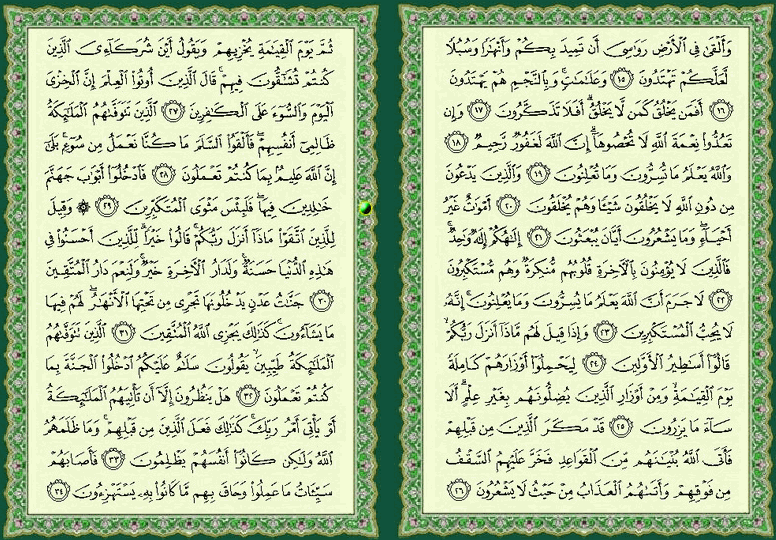 وَأَلْقَىٰ فِي ٱلْأَرْضِ رَوَٰسِىَ أَن تَمِيدَ بِكُمْ وَأَنْهَٰرًا وَسُبُلًا
لَّعَلَّكُمْ تَهْتَدُونَ ١٥ وَعَلَٰمَٰتٍ ۚ وَبِٱلنَّجْمِ هُمْ يَهْتَدُونَ
١٦ أَفَمَن يَخْلُقُ كَمَن لَّا يَخْلُقُ ۗ أَفَلَا تَذَكَّرُونَ ١٧ وَإِن
تَعُدُّوا۟ نِعْمَةَ ٱللَّهِ لَا تُحْصُوهَآ ۗ إِنَّ ٱللَّهَ لَغَفُورٌ رَّحِيمٌ ١٨
وَٱللَّهُ يَعْلَمُ مَا تُسِرُّونَ وَمَا تُعْلِنُونَ ١٩ وَٱلَّذِينَ يَدْعُونَ
مِن دُونِ ٱللَّهِ لَا يَخْلُقُونَ شَيْـًٔا وَهُمْ يُخْلَقُونَ ٢٠ أَمْوَٰتٌ غَيْرُ
أَحْيَآءٍ ۖ وَمَا يَشْعُرُونَ أَيَّانَ يُبْعَثُونَ ٢١ إِلَٰهُكُمْ إِلَٰهٌ وَٰحِدٌ ۚ
فَٱلَّذِينَ لَا يُؤْمِنُونَ بِٱلْءَاخِرَةِ قُلُوبُهُم مُّنكِرَةٌ وَهُم مُّسْتَكْبِرُونَ
٢٢ لَا جَرَمَ أَنَّ ٱللَّهَ يَعْلَمُ مَا يُسِرُّونَ وَمَا يُعْلِنُونَ ۚ إِنَّهُۥ
لَا يُحِبُّ ٱلْمُسْتَكْبِرِينَ ٢٣ وَإِذَا قِيلَ لَهُم مَّاذَآ أَنزَلَ رَبُّكُمْ ۙ
قَالُوٓا۟ أَسَٰطِيرُ ٱلْأَوَّلِينَ ٢٤ لِيَحْمِلُوٓا۟ أَوْزَارَهُمْ كَامِلَةً
يَوْمَ ٱلْقِيَٰمَةِ ۙ وَمِنْ أَوْزَارِ ٱلَّذِينَ يُضِلُّونَهُم بِغَيْرِ عِلْمٍ ۗ أَلَا
سَآءَ مَا يَزِرُونَ ٢٥ قَدْ مَكَرَ ٱلَّذِينَ مِن قَبْلِهِمْ
فَأَتَى ٱللَّهُ بُنْيَٰنَهُم مِّنَ ٱلْقَوَاعِدِ فَخَرَّ عَلَيْهِمُ ٱلسَّقْفُ
مِن فَوْقِهِمْ وَأَتَىٰهُمُ ٱلْعَذَابُ مِنْ حَيْثُ لَا يَشْعُرُونَ ٢٦
ثُمَّ يَوْمَ ٱلْقِيَٰمَةِ يُخْزِيهِمْ وَيَقُولُ أَيْنَ شُرَكَآءِىَ ٱلَّذِينَ
كُنتُمْ تُشَٰٓقُّونَ فِيهِمْ ۚ قَالَ ٱلَّذِينَ أُوتُوا۟ ٱلْعِلْمَ إِنَّ ٱلْخِزْىَ
ٱلْيَوْمَ وَٱلسُّوٓءَ عَلَى ٱلْكَٰفِرِينَ ٢٧ ٱلَّذِينَ تَتَوَفَّىٰهُمُ ٱلْمَلَٰٓئِكَةُ
ظَالِمِىٓ أَنفُسِهِمْ ۖ فَأَلْقَوُا۟ ٱلسَّلَمَ مَا كُنَّا نَعْمَلُ مِن سُوٓءٍۭ ۚ بَلَىٰٓ
إِنَّ ٱللَّهَ عَلِيمٌۢ بِمَا كُنتُمْ تَعْمَلُونَ ٢٨ فَٱدْخُلُوٓا۟ أَبْوَٰبَ جَهَنَّمَ
خَٰلِدِينَ فِيهَا ۖ فَلَبِئْسَ مَثْوَى ٱلْمُتَكَبِّرِينَ ٢٩ ۞ وَقِيلَ
لِلَّذِينَ ٱتَّقَوْا۟ مَاذَآ أَنزَلَ رَبُّكُمْ ۚ قَالُوا۟ خَيْرًا ۗ لِّلَّذِينَ أَحْسَنُوا۟ فِى
هَٰذِهِ ٱلدُّنْيَا حَسَنَةٌ ۚ وَلَدَارُ ٱلْءَاخِرَةِ خَيْرٌ ۚ وَلَنِعْمَ دَارُ ٱلْمُتَّقِينَ
٣٠ جَنَّٰتُ عَدْنٍ يَدْخُلُونَهَا تَجْرِى مِن تَحْتِهَا ٱلْأَنْهَٰرُ ۖ لَهُمْ فِيهَا
مَا يَشَآءُونَ ۚ كَذَٰلِكَ يَجْزِى ٱللَّهُ ٱلْمُتَّقِينَ ٣١ ٱلَّذِينَ تَتَوَفَّىٰهُمُ
ٱلْمَلَٰٓئِكَةُ طَيِّبِينَ ۙ يَقُولُونَ سَلَٰمٌ عَلَيْكُمُ ٱدْخُلُوا۟ ٱلْجَنَّةَ بِمَا
كُنتُمْ تَعْمَلُونَ ٣٢ هَلْ يَنظُرُونَ إِلَّآ أَن تَأْتِيَهُمُ ٱلْمَلَٰٓئِكَةُ
أَوْ يَأْتِىَ أَمْرُ رَبِّكَ ۚ كَذَٰلِكَ فَعَلَ ٱلَّذِينَ مِن قَبْلِهِمْ ۚ وَمَا ظَلَمَهُمُ
ٱللَّهُ وَلَٰكِن كَانُوٓا۟ أَنفُسَهُمْ يَظْلِمُونَ ٣٣ فَأَصَابَهُمْ
سَيِّـَٔاتُ مَا عَمِلُوا۟ وَحَاقَ بِهِم مَّا كَانُوا۟ بِهِۦ يَسْتَهْزِءُونَ ٣٤